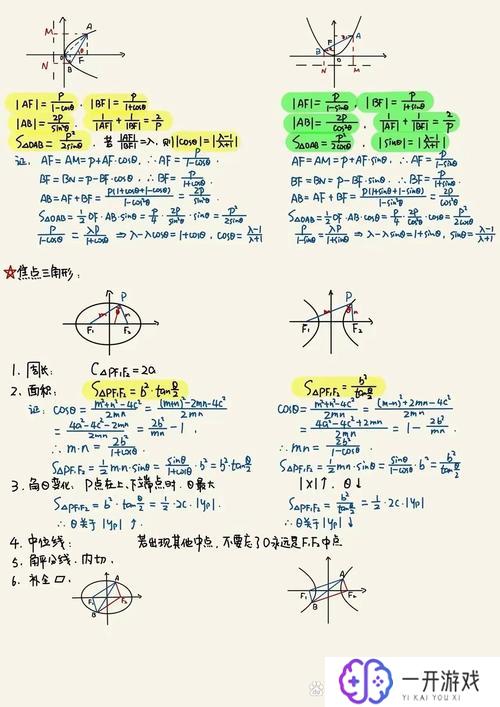 M A
O F
N B
|AF|=p/(1-cosθ) |BF|=p/(1+cosθ)
|AB|=2p/sin²θ 1/|AF|+1/|BF|=2/p
S△OAB=p²/2sinθ. 若|AF|/|BF|=λ,则|cosθ|=|(λ-1)/(λ+1)|
证: AF=AM=p+AF·cosθ, ∴AF=p/(1-cosθ)
BF=BN=p-BF·cosθ, ∴BF=p/(1+cosθ)
AB=AF+BF=p(1+cosθ+1-cosθ)/(1-cos²θ)=2p/sin²θ
S△OAB=½OF·AB·sinθ=p/4·2p/sin²θ=p²/2sinθ
p/(1-cosθ)=λp/(1+cosθ) ⇒λ-λcosθ=1+cosθ, cosθ=(λ-1)/(λ+1)
F A
B
M N
|AF|=p/(1-sinθ) |BF|=p/(1+sinθ)
|AB|=2p/cos²θ 1/|AF|+1/|BF|=2/p
S△OAB=p²/2cosθ |sinθ|=|(λ-1)/(λ+1)|
AF=AM=p+AF·sinθ, ∴AF=p/(1-sinθ)
BF=BN=p-BF·sinθ, ∴BF=p/(1+sinθ)
AB=AF+BF=p(1+sinθ+1-sinθ)/(1-sin²θ)=2p/cos²θ
S△OAB=½OF·AB·cosθ=p/4·2p/cos²θ=p²/2cosθ
p/(1-sinθ)=λp/(1+sinθ) ⇒λ-λsinθ=1+sinθ, sinθ=(λ-1)/(λ+1)
☆焦点三角形:
P
m θ n
F₁ F₂
P
m θ n
F₁ F₂
1. 周长: C△PF₁F₂=2a
2. 面积: S△PF₁F₂=b²·tanθ/2
S△PF₁F₂=b²/tanθ/2
证: cosθ=(m²+n²-4c²)/2mn=((m+n)²-2mn-4c²)/2mn
=(4a²-4c²-2mn)/2mn=2b²/mn-1.
∴m·n=2b²/(1+cosθ)
S△PF₁F₂=½mn·sinθ=sinθ/(1+cosθ)·b²=b²·tanθ/2
cosθ=(m²+n²-4c²)/2mn=((m-n)²+2mn-4c²)/2mn
=(4a²-4c²+2mn)/2mn=-2b²/mn+1
∴mn=2b²/(1-cosθ)
S△PF₁F₂=½mn·sinθ=sinθ/(1-cosθ)·b²=b²/tanθ/2
3. 角θ变化: P点在上、下端点时, θ最大
S△PF₁F₂=b²·tanθ/2=½·2c·|yp|
∴θ关于|yp|↑
|x|↑, θ↓
S△PF₁F₂=b²/tanθ/2=½·2c·|yp|
∴θ关于|yp|↓
4. 中位线: 若出现其他中点,不要忘了O永远是F₁F₂中点
5. 角平分线、内切.
6. 补全口.
A
F₁ F₂
B
A
F₁ F₂
B
一开游戏
YI KAI YOU XI